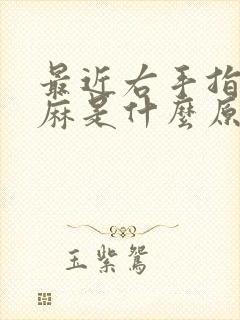 最近右手指
麻是什麼原
玉紫鴛